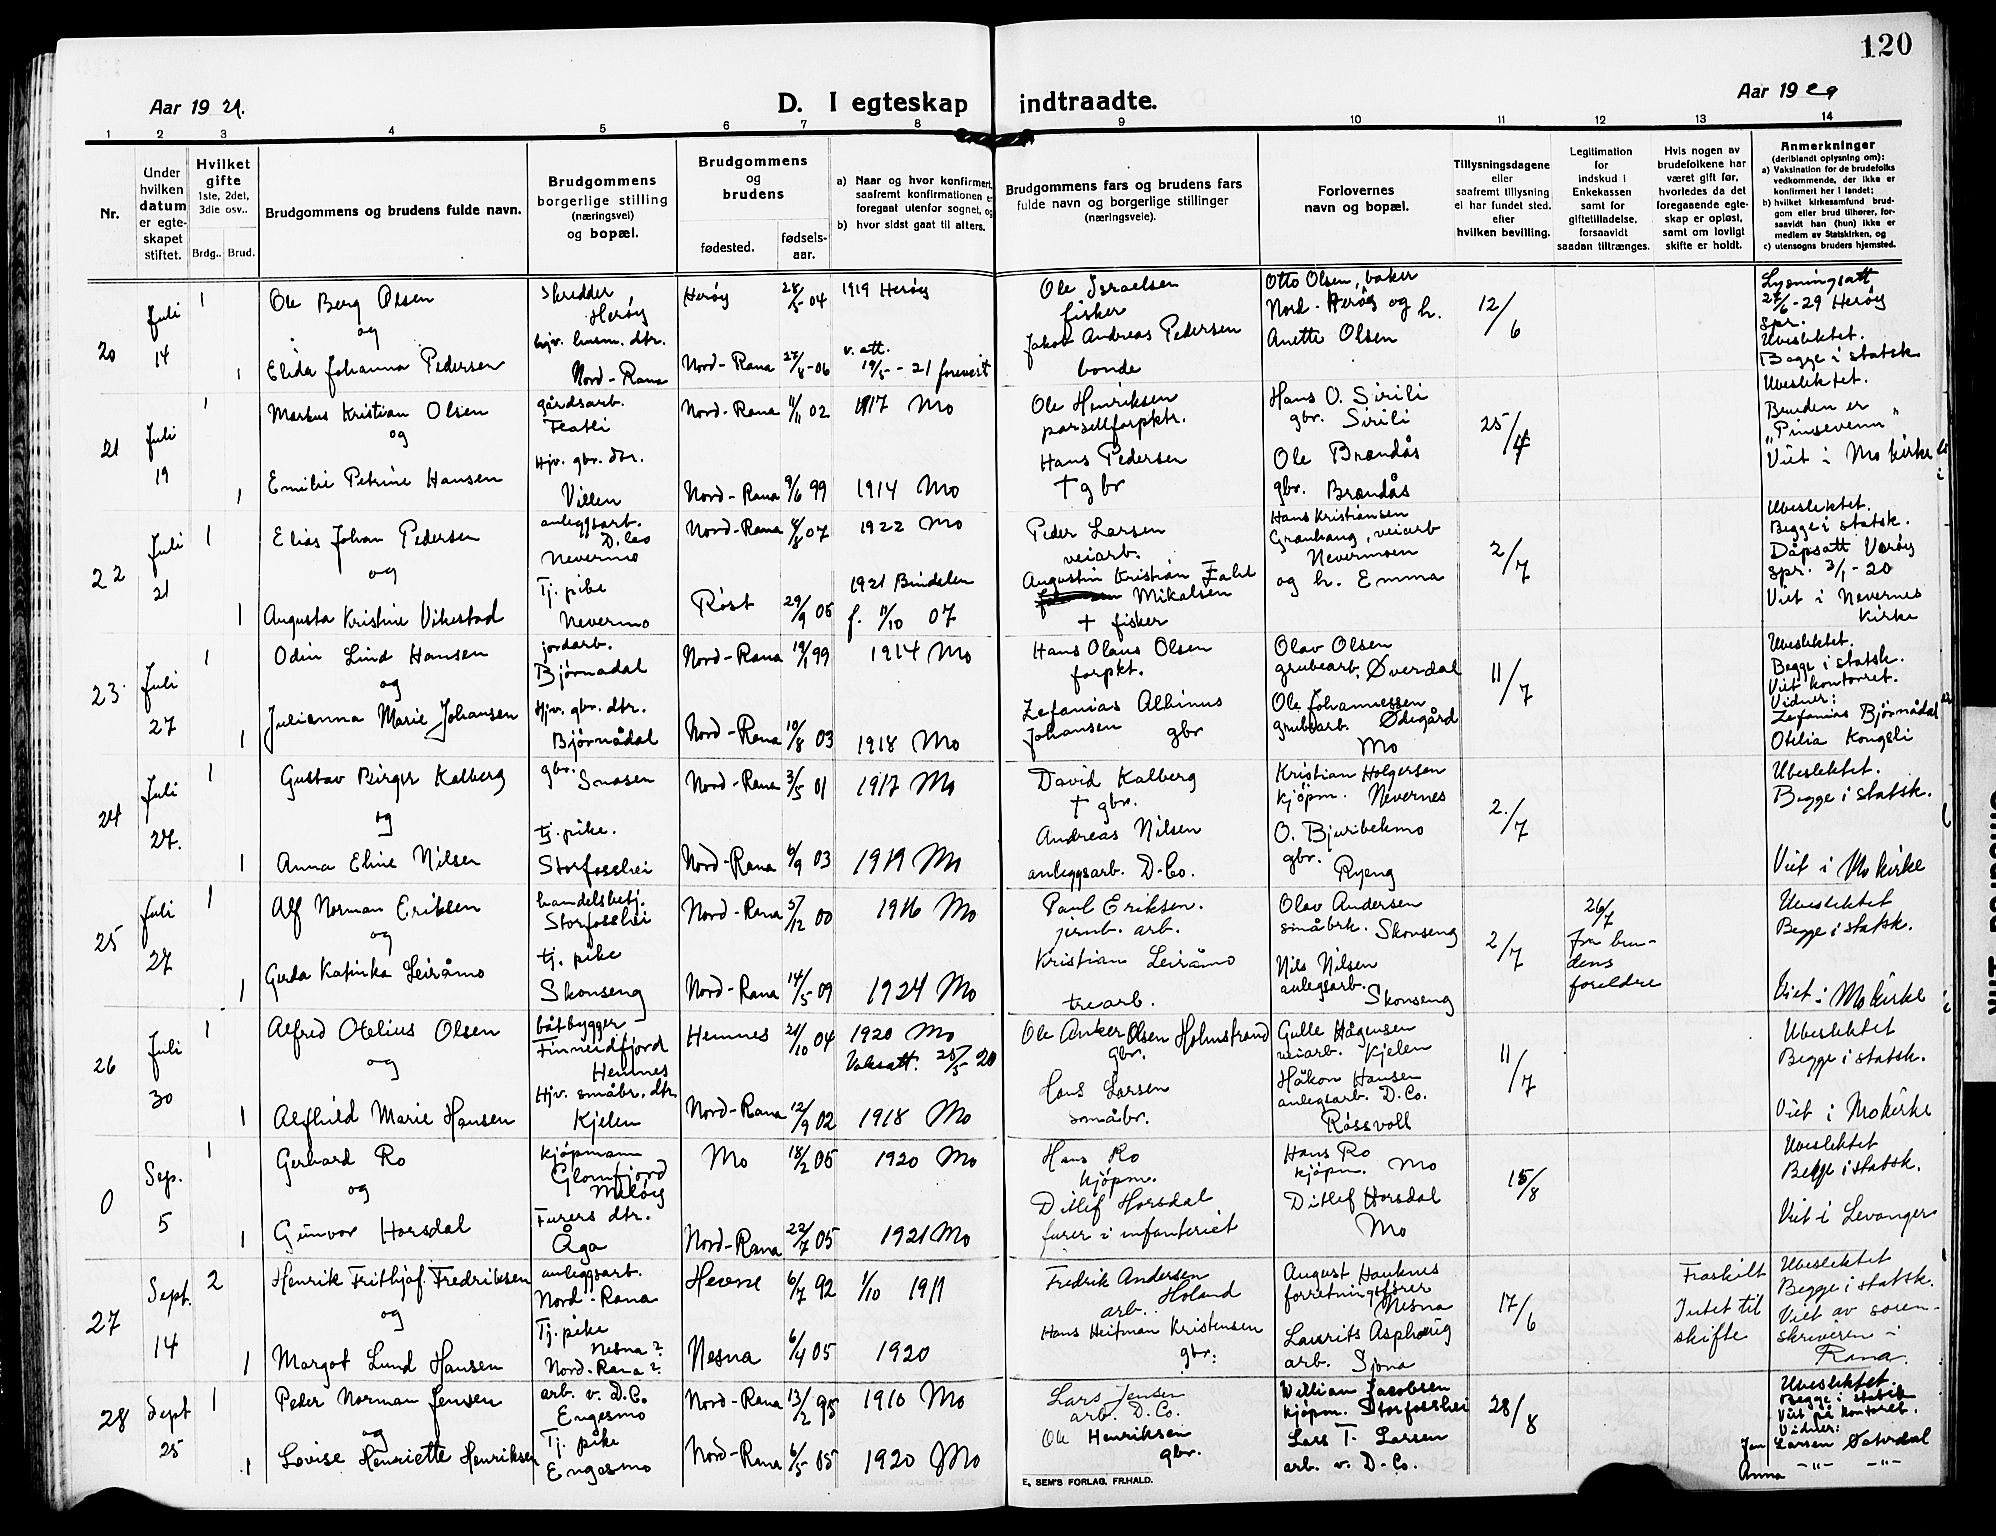 120
Aar 19 29.
D. I egteskap indtraadte.
Aar 19 29
1 2 3 4 5 6 7 8 9 10 11 12 13 14
Nr.
Under hvilken datum er egteskapet stiftet.
Hvilket gifte 1ste, 2det, 3die osv..
Brdg.. Brud.
Brudgommens og brudens fulde navn.
Brudgommens borgerlige stilling (næringsvei) og bopæl.
Brudgommens og brudens
fødested. fødselsaar.
a) Naar og hvor konfirmert, saafremt konfirmationen er foregaat utenfor sognet, og
b) hvor sidst gaat til alters.
Brudgommens fars og brudens fars fulde navn og borgerlige stillinger (næringsveie).
Forlovernes navn og bopæl.
Tillysningsdagene eller saafremt tillysning ei har fundet sted. efter hvilken bevilling.
Legitimation for indskud i Enkekassen samt for giftetilladelse, forsaavidt saadan tiltrænges.
Hvis nogen av brudefolkene har været gift før, hvorledes da det foregaaende egteskap er opløst, samt om lovligt skifte er holdt.
Anmerkninger (deriblandt oplysning om):
a) Vaksination for de brudefolks vedkommende, der ikke er konfirmert her i landet;
b) hvilket kirkesamfund brudgom eller brud tilhører, forsaavidt han (hun) ikke er medlem av Statskirken, og
c) utensogns bruders hjemsted.
20 Juli 14 1 Ole Berg Olsen Skredder, Herøy Herøy 28/5-04 1919 Herøy Ole Israelsen fisker Otto Olsen, baker Nord-Herøy og h. Anette Olsen 12/6 Lysningsatt 27/6-29 Herøy spr. Ubeslektet. Begge i statsk.
og
1 Elida Johanna Pedersen hjv. husm. dtr. Nord-Rana Nord-Rana 27/8-06 v. att. 19/5--21 forevist Jakob Andreas Pedersen bonde
21 Juli 19 1 Markus Kristian Olsen gårdsarb. Nord-Rana 11/11 02 1917 Mo Ole Henriksen parsellforpktr. Hans O. Sirili gbr. Sirili 25/4 Ubeslektet. Bruden er "Pinsevenn" Viet i Mo kirke
og
1 Emilie Petrine Hansen Hjv. gbr. dtr. Villen Nord-Rana 9/6 99 1914 Mo Hans Pedersen † gbr Ole Brændås gbr. Brændås
22 Juli 21 1 Elias Johan Pedersen anleggsarb. D.Co Nevermo Nord-Rana 4/8 07 1922 Mo Peder Larsen veiarb. Hans Kristiansen Granhaug, veiarb Nevermoen og h. Emma 2/7 Ubeslektet. Begge i statsk. Dåpsatt Værøy spr. 3/1-20 Viet i Nevernes kirke
og
1 Augusta Kristine Vikestad Tj. pike Nevermo Røst 29/9 05 1921 Bindalen f. 11/10 07 Augustin Kristian Mikalsen † fisker
23 Juli 27 1 Odin Lind Hansen jordarb. Bjørnådal Nord-Rana 19/1 99 1914 Mo Hans Olaus Olsen forpkt. Olav Olsen grubearb. Øverdal 11/7 Ubeslektet. Begge i statsk. Viet kontoret. Vidner: Zefanias Bjørnådal Otelia Kongsli
og
1 Julianna Marie Johansen Hjv. gbr. dtr. Bjørnådal Nord-Rana 10/8 03 1918 Mo Zefanias Albinus Johansen gbr Ole Johannessen grubearb. Ødegård Mo
24 Juli 27. 1 Gustav Birger Kalberg gbr. Snasen Nord-Rana 3/5 01 1917 Mo David Kalberg † gbr. Kristian Holgersen kjøpm. Nevernes 2./7 Ubeslektet. Begge i statsk.
og
1 Anna Eline Nilsen tj. pike. Storfosshei Nord-Rana 6/9 03 1919 Mo Andreas Nilsen anleggsarb. D-Co. O. Bjuribekmo gbr. Ryeng Viet i Mo kirke
25 Juli 27 1 Alf Norman Eriksen handelsbetj. Storfosshei Nord-Rana 5/12 00 1916 Mo Paul Eriksen. jernb. arb. Olav Andersen småbrk. Skonseng 2/7 26/7 fra brudens foreldre Ubeslektet Begge i statsk.
og
1 Gerda Katinka Leiråmo tj. pike Skonseng Nord-Rana 14/5 09 1924 Mo Kristian Leiråmo trearb. Nils Nilsen anlegsarb. Skonseng Viet i Mo kirke
26 Juli 30 1 Alfred Otelius Olsen båtbygger Finneidfjord Hemnes Hemnes 21/10 04 1920 Mo Vaksatt. 25/5-20 Ole Anker Olsen Holmstrand gbr. Gulle Hågensen veiarb. Kjelen 11/7 Ubeslektet Begge i statsk.
og
1 Alfhild Marie Hansen Hjv. småbr. dtr. Kjelen Nord-Rana 12/9 02 1918 Mo Hans Larsen småbr. Håkon Hansen anlegsarb. D.Co. Røssvoll Viet i Mo kirke
0 Sep. 5 1 Gerhard Ro kjøpmann Glomfjord Meløy Mo 18/2 05 1920 Mo Hans Ro kjøpm. Hans Ro kjøpm. Mo 15/8 Ubeslektet Begge i statsk.
og
1 Gunvor Horsdal Furers dtr. Åga Nord-Rana 22/7 05 1921 Mo Ditlef Horsdal furer i infanteriet Ditlef Horsdal Mo Viet i Levanger
27 Sept. 14 2 Henrik Frithjof Fredriksen anleggsarb. Nord-Rana Hevne 6/7 92 1/10 1911 Fredrik Andersen Holand arb. August Hauknes forretningsfører Nesna 17/6 Fraskilt Intet til skifte Ubeslektet Begge i statsk. Viet av sorenskriveren i Rana.
og
1 Margot Lund Hansen Tj. pike Nesna? Nord-Rana? Nesna 6/4 05 1920 Hans Heitman Kristensen gbr. Laurits Asphaug arb. Sjona
28 Sept 25 1 Peder Norman Jensen arb. v. D.Co Engesmo Nord-Rana 13/2 95 1910 Mo Lars Jensen arb. D.Co. William Jacobsen kjøpm. Storfosshei 28/8 Ubeslektet. Begge i statsk Viet på kontoret. Vidner:
og
1 Lovise Henriette Henriksen Tj. pike Engesmo Nord-Rana 6/5 05 1920 Mo Ole Henriksen gbr. Lars T. Larsen arb. v. D-Co. Jan Larsen Anna -"- -"-
E. SEM'S FORLAG, FR.HALD.